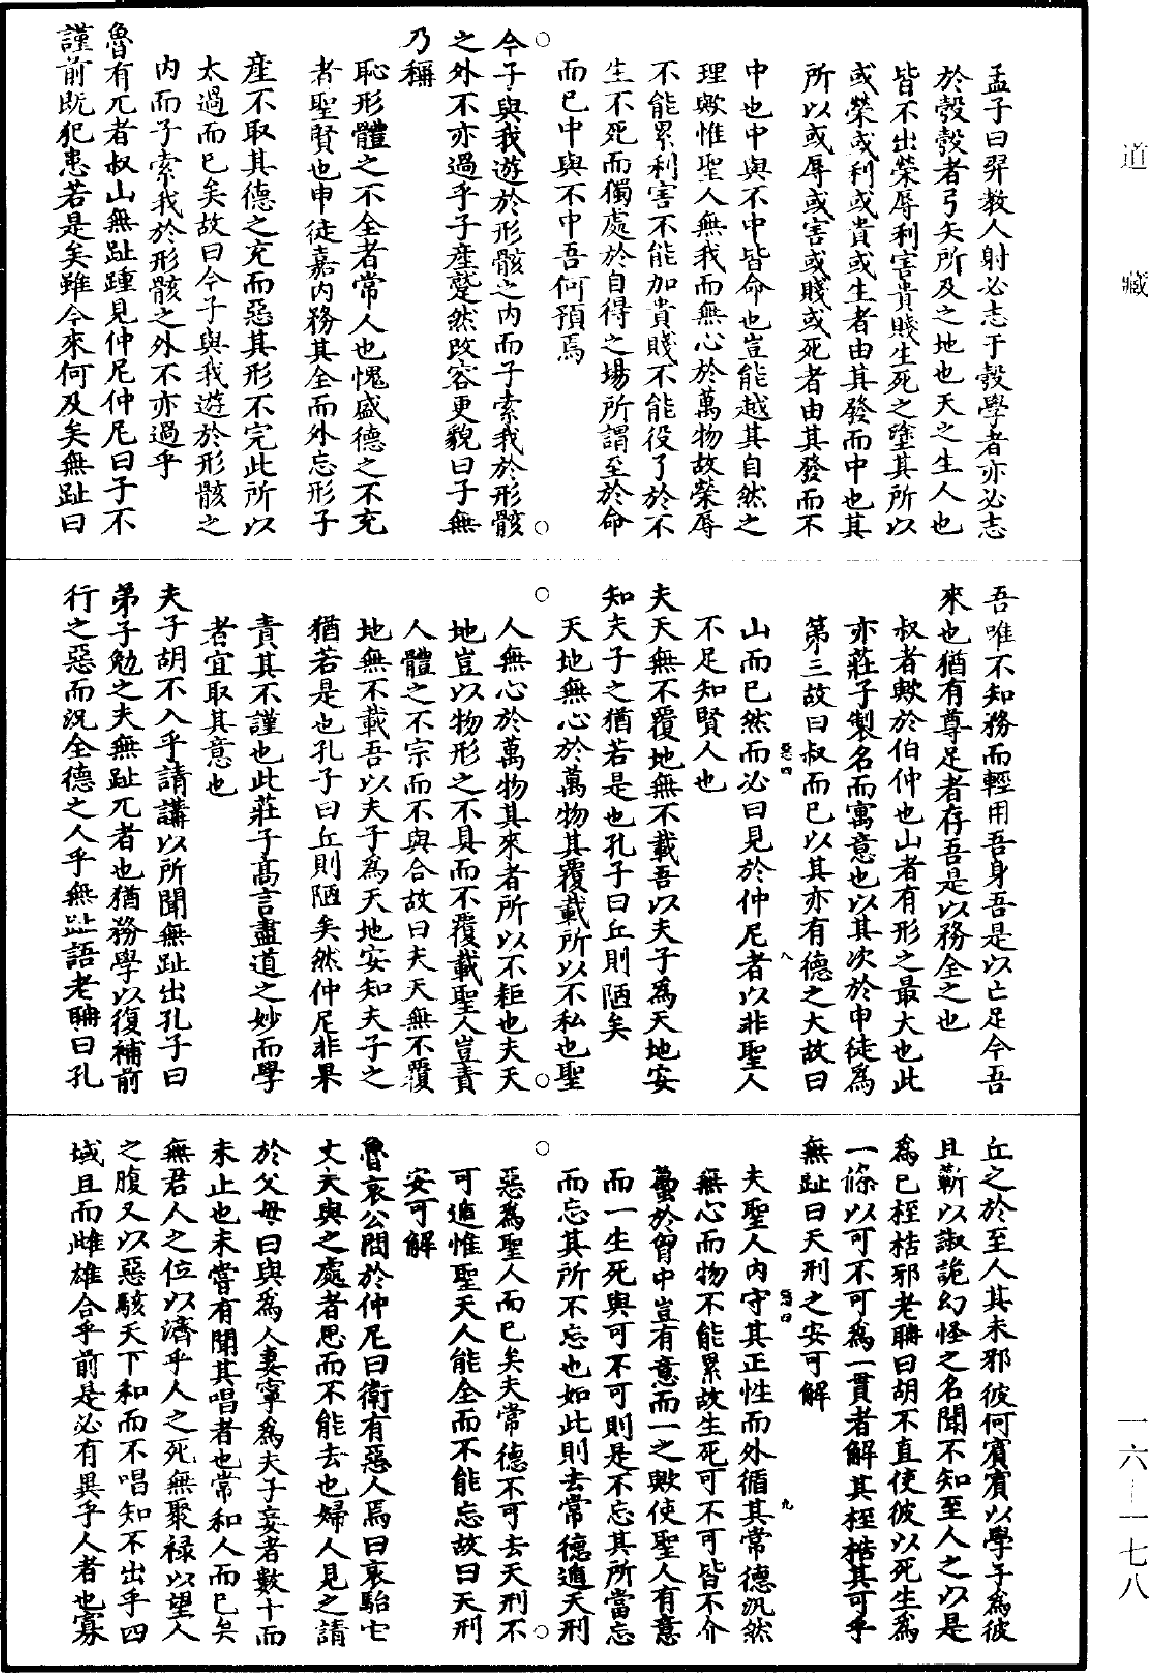 道藏
孟子曰羿教人射必志于彀學者亦必志
於彀彀者弓矢所及之地也天之生人也
皆不出榮辱利害貴賤生死之塗其所以
或榮或利或貴或生者由其發而中也其
所以或辱或害或賤或死者由其發而不
中也中與不中皆命也豈能越其自然之
理歟惟聖人無我而無心於萬物故榮辱
不能累利害不能加貴賤不能役了於不
生不死而獨處於自得之場所謂至於命
而已中與不中吾何預焉
今子與我遊於形骸之內而子索我於形骸
之外不亦過乎子產蹵然改容更貌曰子無
乃稱
恥形體之不全者常人也愧盛德之不充
者聖賢也申徒嘉內務其全而外忘形子
產不取其德之充而惡其形不完此所以
太過而已矣故曰今子與我遊於形骸之
內而子索我於形骸之外不亦過乎
魯有兀者叔山無趾踵見仲尼仲尼曰子不
謹前既犯患若是矣雖今來何及矣無趾曰
吾唯不知務而輕用吾身吾是以亡足今吾
來也猶有尊足者存吾是以務全之也
叔者歟於伯仲也山者有形之最大也此
亦莊子製名而寓意也以其次於申徒為
第三故曰叔而已以其亦有德之大故曰
山而已然而必曰見於仲尼者以非聖人
不足知賢人也
夫天無不覆地無不載吾以夫子為天地安
知夫子之猶若是也孔子曰丘則陋矣
天地無心於萬物其覆載所以不私也聖
人無心於萬物其來者所以不距也夫天
地豈以物形之不具而不覆載聖人豈責
人體之不宗而不與合故曰夫天無不覆
地無不載吾以夫子為天地安知夫子之
猶若是也孔子曰丘則陋矣然仲尼非果
責其不謹也此莊子高言盡道之妙而學
者宜取其意也
夫子胡不入乎請講以所聞無趾出孔子曰
弟子勉之夫無趾兀者也猶務學以復補前
行之惡而況全德之人乎無趾語老聃曰孔
丘之於至人其未邪彼何賓賓以學子為彼
且蘄以諔詭幻怪之名聞不知至人之以是
為已桎梏邪老聃曰胡不直使彼以死生為
一條以可不可為一貫者解其桎梏其可乎
無趾曰天刑之安可解
夫聖人內守其正性而外循其常德汎然
無心而物不能累故生死可不可皆不介
蠆於胷中豈有意而一之歟使聖人有意
而一生死與可不可則是不忘其所當忘
而忘其所不忘也如此則去常德逭天刑
惡為聖人而已矣夫常德不可去天刑不
可逭惟聖天人能全而不能忘故曰天刑
安可解
魯哀公問於仲尼曰衛有惡人焉曰哀駘它
丈夫與之處者思而不能去也婦人見之請
於父母曰與為人妻寧為夫子妾者數十而
未止也未嘗有聞其唱者也常和人而已矣
無君人之位以濟乎人之死無聚祿以望人
之腹又以惡駭天下和而不唱知不出乎四
域且而雌雄合乎前是必有異乎人者也寡
一六—一七八